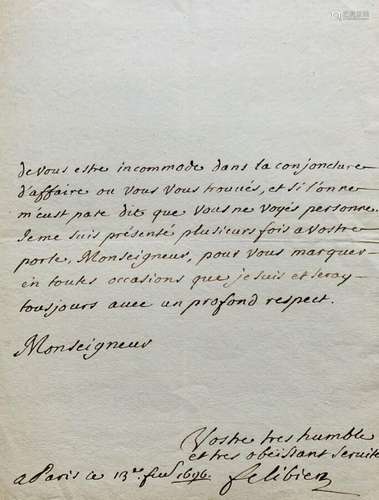 de vous estre incommode dans la conjoncture
d'affaire ou vous vous trouués, et si l'on ne
m'eust pas dit que vous ne voyés personne.
Je me suis présenté plusieurs fois a vostre
porte, Monseigneur, pour vous marquer
en toutes occasions que je suis et seray
tousjours auec un profond respect.
Monseigneur
Vostre tres humble
et tres obéissant seruite
a Paris ce 13e. 1696. felibien